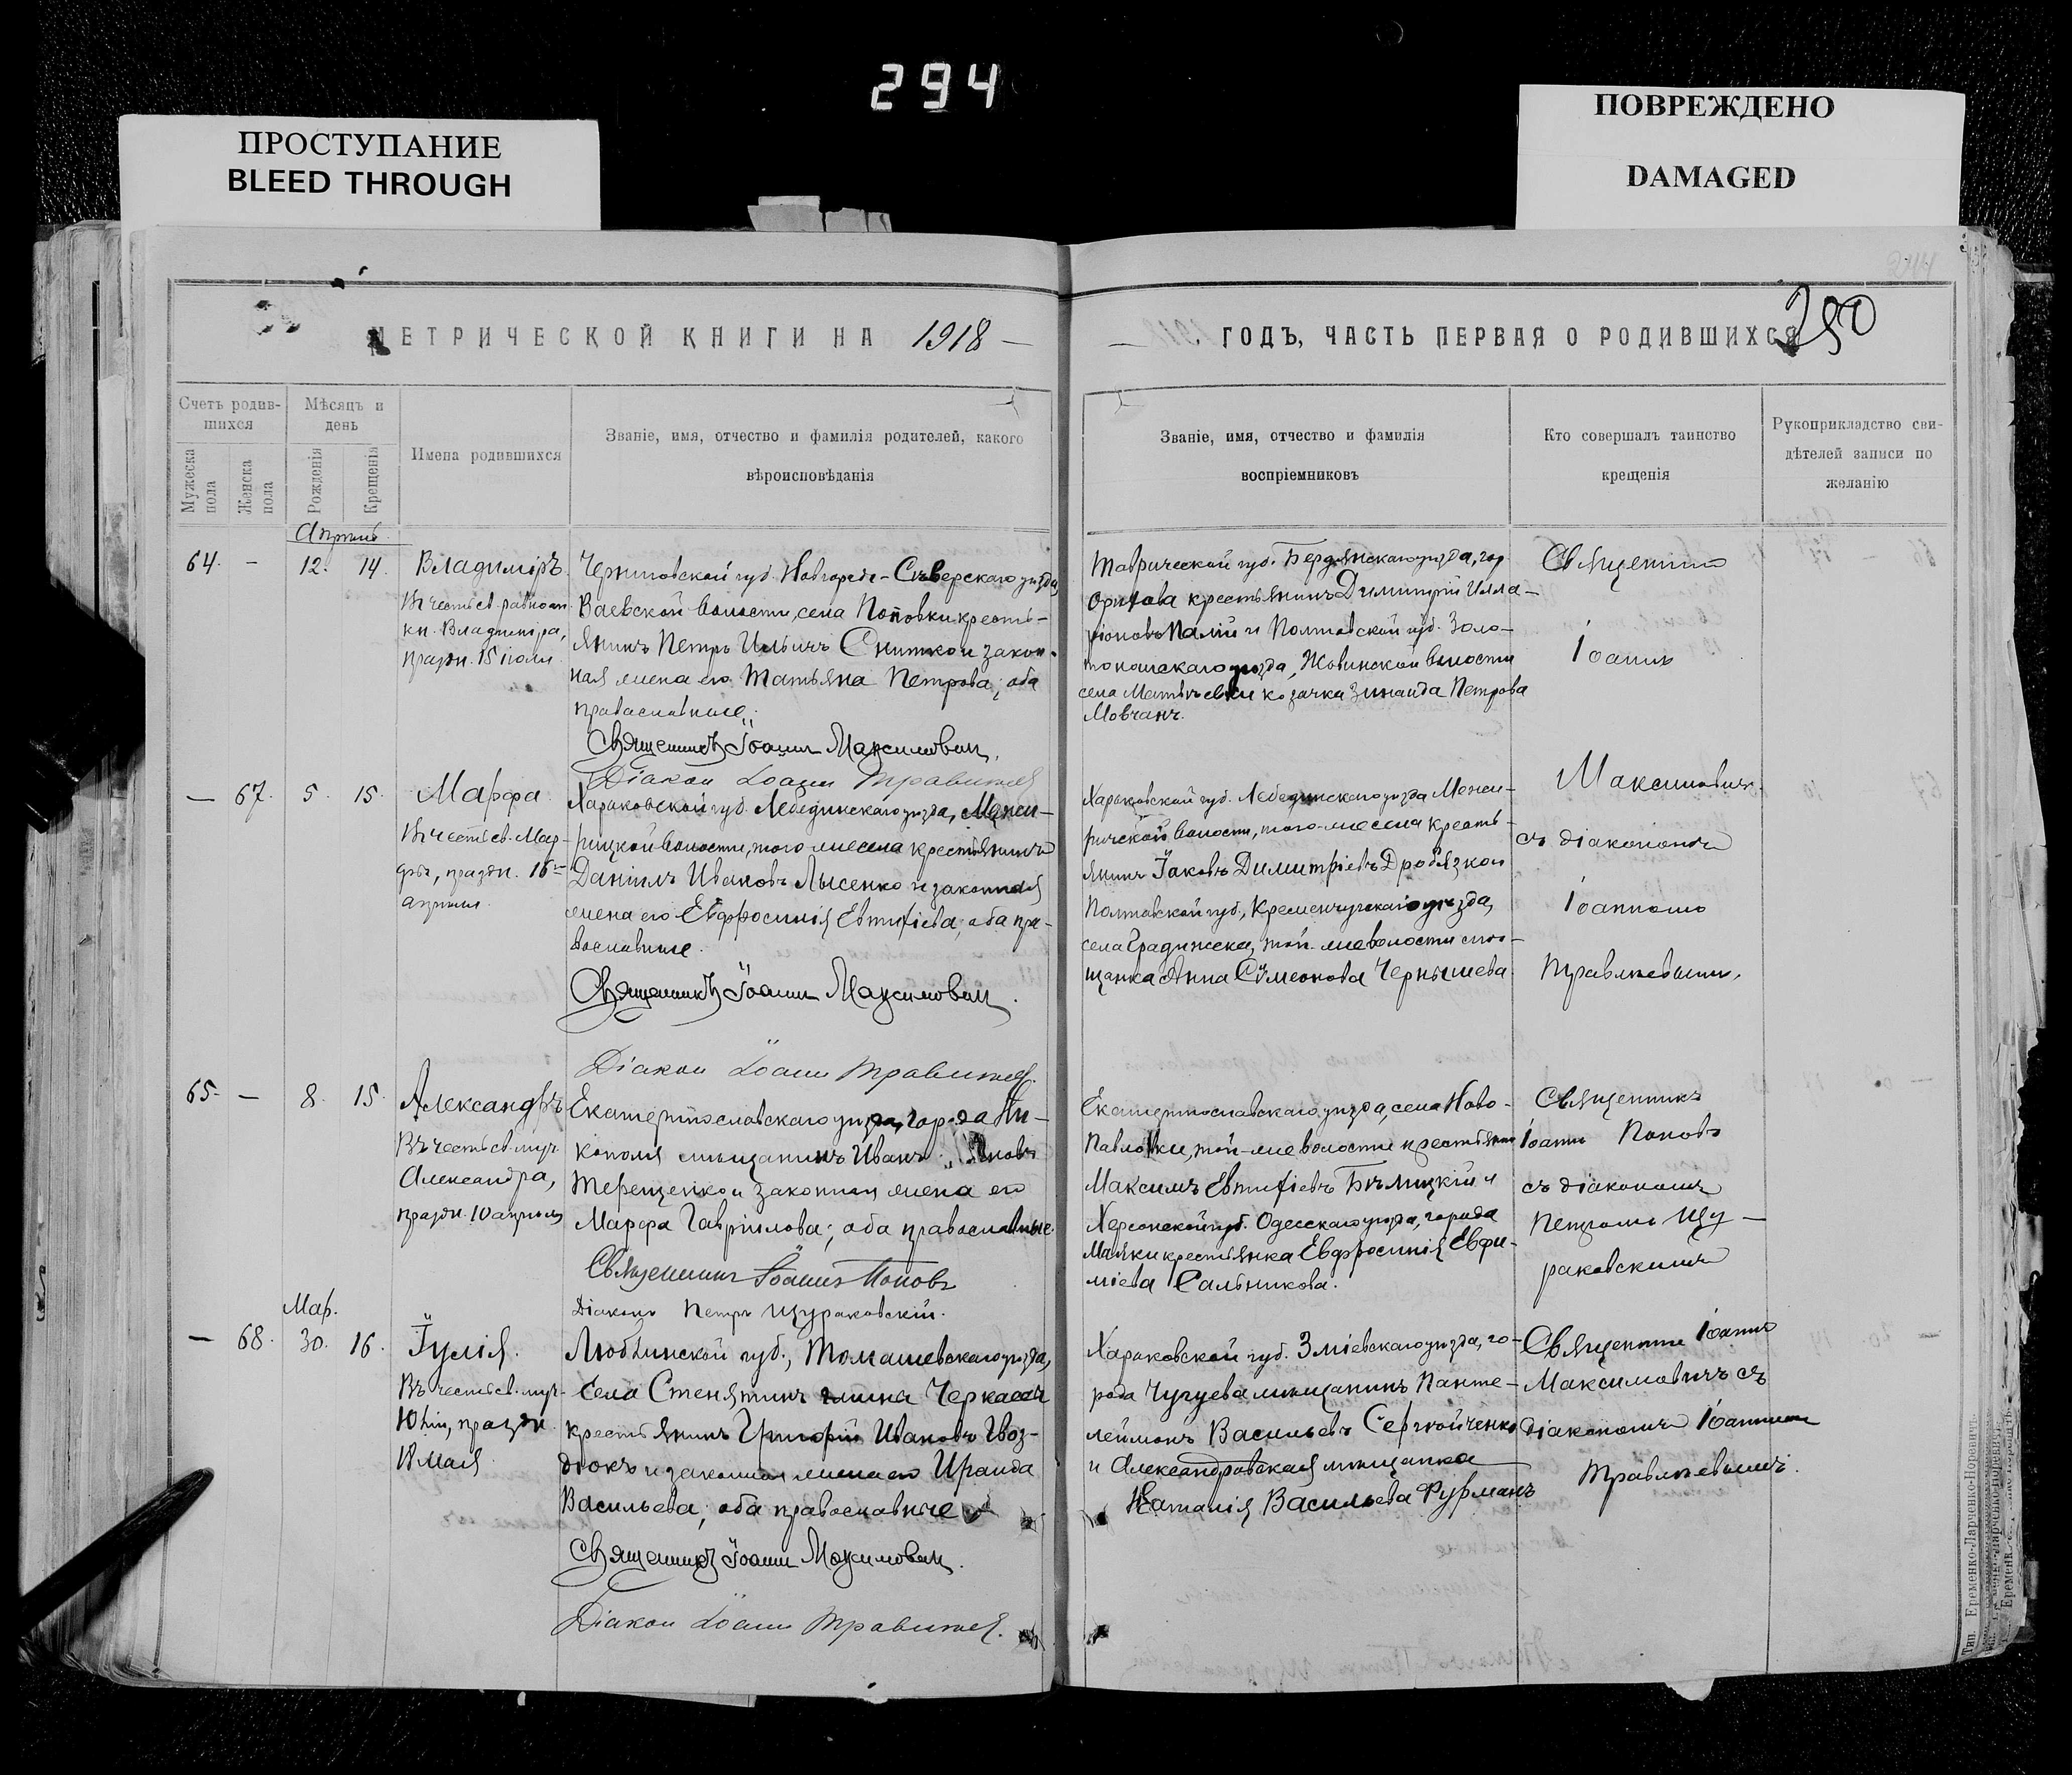 294
ПРОСТУПАНИЕ
BLEED THROUGH
ПОВРЕЖДЕНО
DAMAGED
244
250
МЕТРИЧЕСКОЙ КНИГИ НА 1918 —
— ГОДЪ, ЧАСТЬ ПЕРВАЯ О РОДИВШИХСЯ
Счетъ родив-
шихся
Мужеска пола
Женска пола
Мѣсяцъ и
день
Рожденія
Крещенія
Имена родившихся
Званіе, имя, отчество и фамилія родителей, какого
вѣроисповѣданія
Званіе, имя, отчество и фамилія
воспріемниковъ
Кто совершалъ таинство
крещенія
Рукоприкладство сви-
дѣтелей записи по
желанію
Апрѣль
64. – 12. 14.
Владиміръ
Въ честь св. равноап.
кн. Владиміра,
праздн. 15 іюля
Черниговской губ. Новгородъ-Сѣверскаго уѣзда
Ваевской волости, села Поповки кресть-
янинъ Петръ Ильичъ Снитко и закон-
ная жена его Татьяна Петрова; оба
православные.
Священникъ Іоаннъ Максимович.
Діакон Іоанн Травлѣев
Таврической губ. Бердянскаго уѣзда, гор.
Орѣхова крестьянинъ Димитрій Илла-
ріоновъ Палій и Полтавской губ. Золо-
тоношскаго уѣзда, Жовинской волости
села Матвѣевки козачка Зинаида Петрова
Мовчанъ.
Священникъ
Іоаннъ
Максимовичъ
съ діакономъ
Іоанномъ
Травлѣевымъ.
— 67. 5. 15.
Марфа
Въ честь св. Мар-
фы, праздн. 16
апрѣля
Харьковской губ. Лебединскаго уѣзда, Межи-
ричской волости, того-же села крестьянинъ
Даніилъ Ивановъ Лысенко и законная
жена его Евфросинія Евтихіева; оба пра-
вославные.
Священникъ Іоаннъ Максимович.
Діакон Іоанн Травлѣев.
Харьковской губ. Лебединскаго уѣзда Межи-
ричской волости, того-же села кресть-
янинъ Іаковъ Димитріевъ Дробязко и
Полтавской губ., Кременчугскаго уѣзда,
села Градижска, той-же волости мѣ-
щанка Анна Сѵмеонова Чернышева.
65. — 8. 15.
Александръ
Въ честь св. муч.
Александра,
праздн. 10 апрѣля
Екатеринославскаго уѣзда, города Ни-
кополя мѣщанинъ Иванъ
Терещенко и законная жена его
Марфа Гавріилова; оба православные.
Священникъ Іоаннъ Поповъ
Діаконъ Петръ Щураковскій.
Екатеринославскаго уѣзда, села Ново-
Павловки, той-же волости крестьянинъ
Максимъ Евтихіевъ Бѣлицкій и
Херсонской губ. Одесскаго уѣзда, города
Маяки крестьянка Евфросинія Евфи-
міева Сальникова.
Священникъ
Іоаннъ Поповъ
съ діакономъ
Петромъ Щу-
раковскимъ
Мар.
— 68. 30. 16.
Іулія.
Въ честь св. муч.
Юліи, праздн.
18 мая.
Люблинской губ., Томашевскаго уѣзда,
села Стенятинъ гмина Черкасы
крестьянинъ Григорій Ивановъ Гвоз-
дюкъ и законная жена его Ираида
Васильева; оба православные
Священникъ Іоаннъ Максимович.
Діакон Іоанн Травлѣев.
Харьковской губ. Зміевскаго уѣзда, го-
рода Чугуева мѣщанинъ Панте-
леймонъ Васильевъ Сергѣйченко
и Александровская мѣщанка
Наталія Васильева Фурманъ
Священникъ Іоаннъ
Максимовичъ съ
діакономъ Іоанномъ
Травлѣевымъ.
Тип. Еременко-Ларченко-Норовичъ